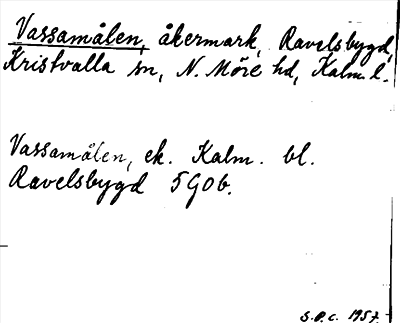 Vassamålen, åkermark, Ravelsbygd,
Kristvalla sn, N. Möre hd, Kalm. l.
Vassamålen, ek. Kalm. bl.
Ravelsbygd 5G0b.
S.O.C. 1957.